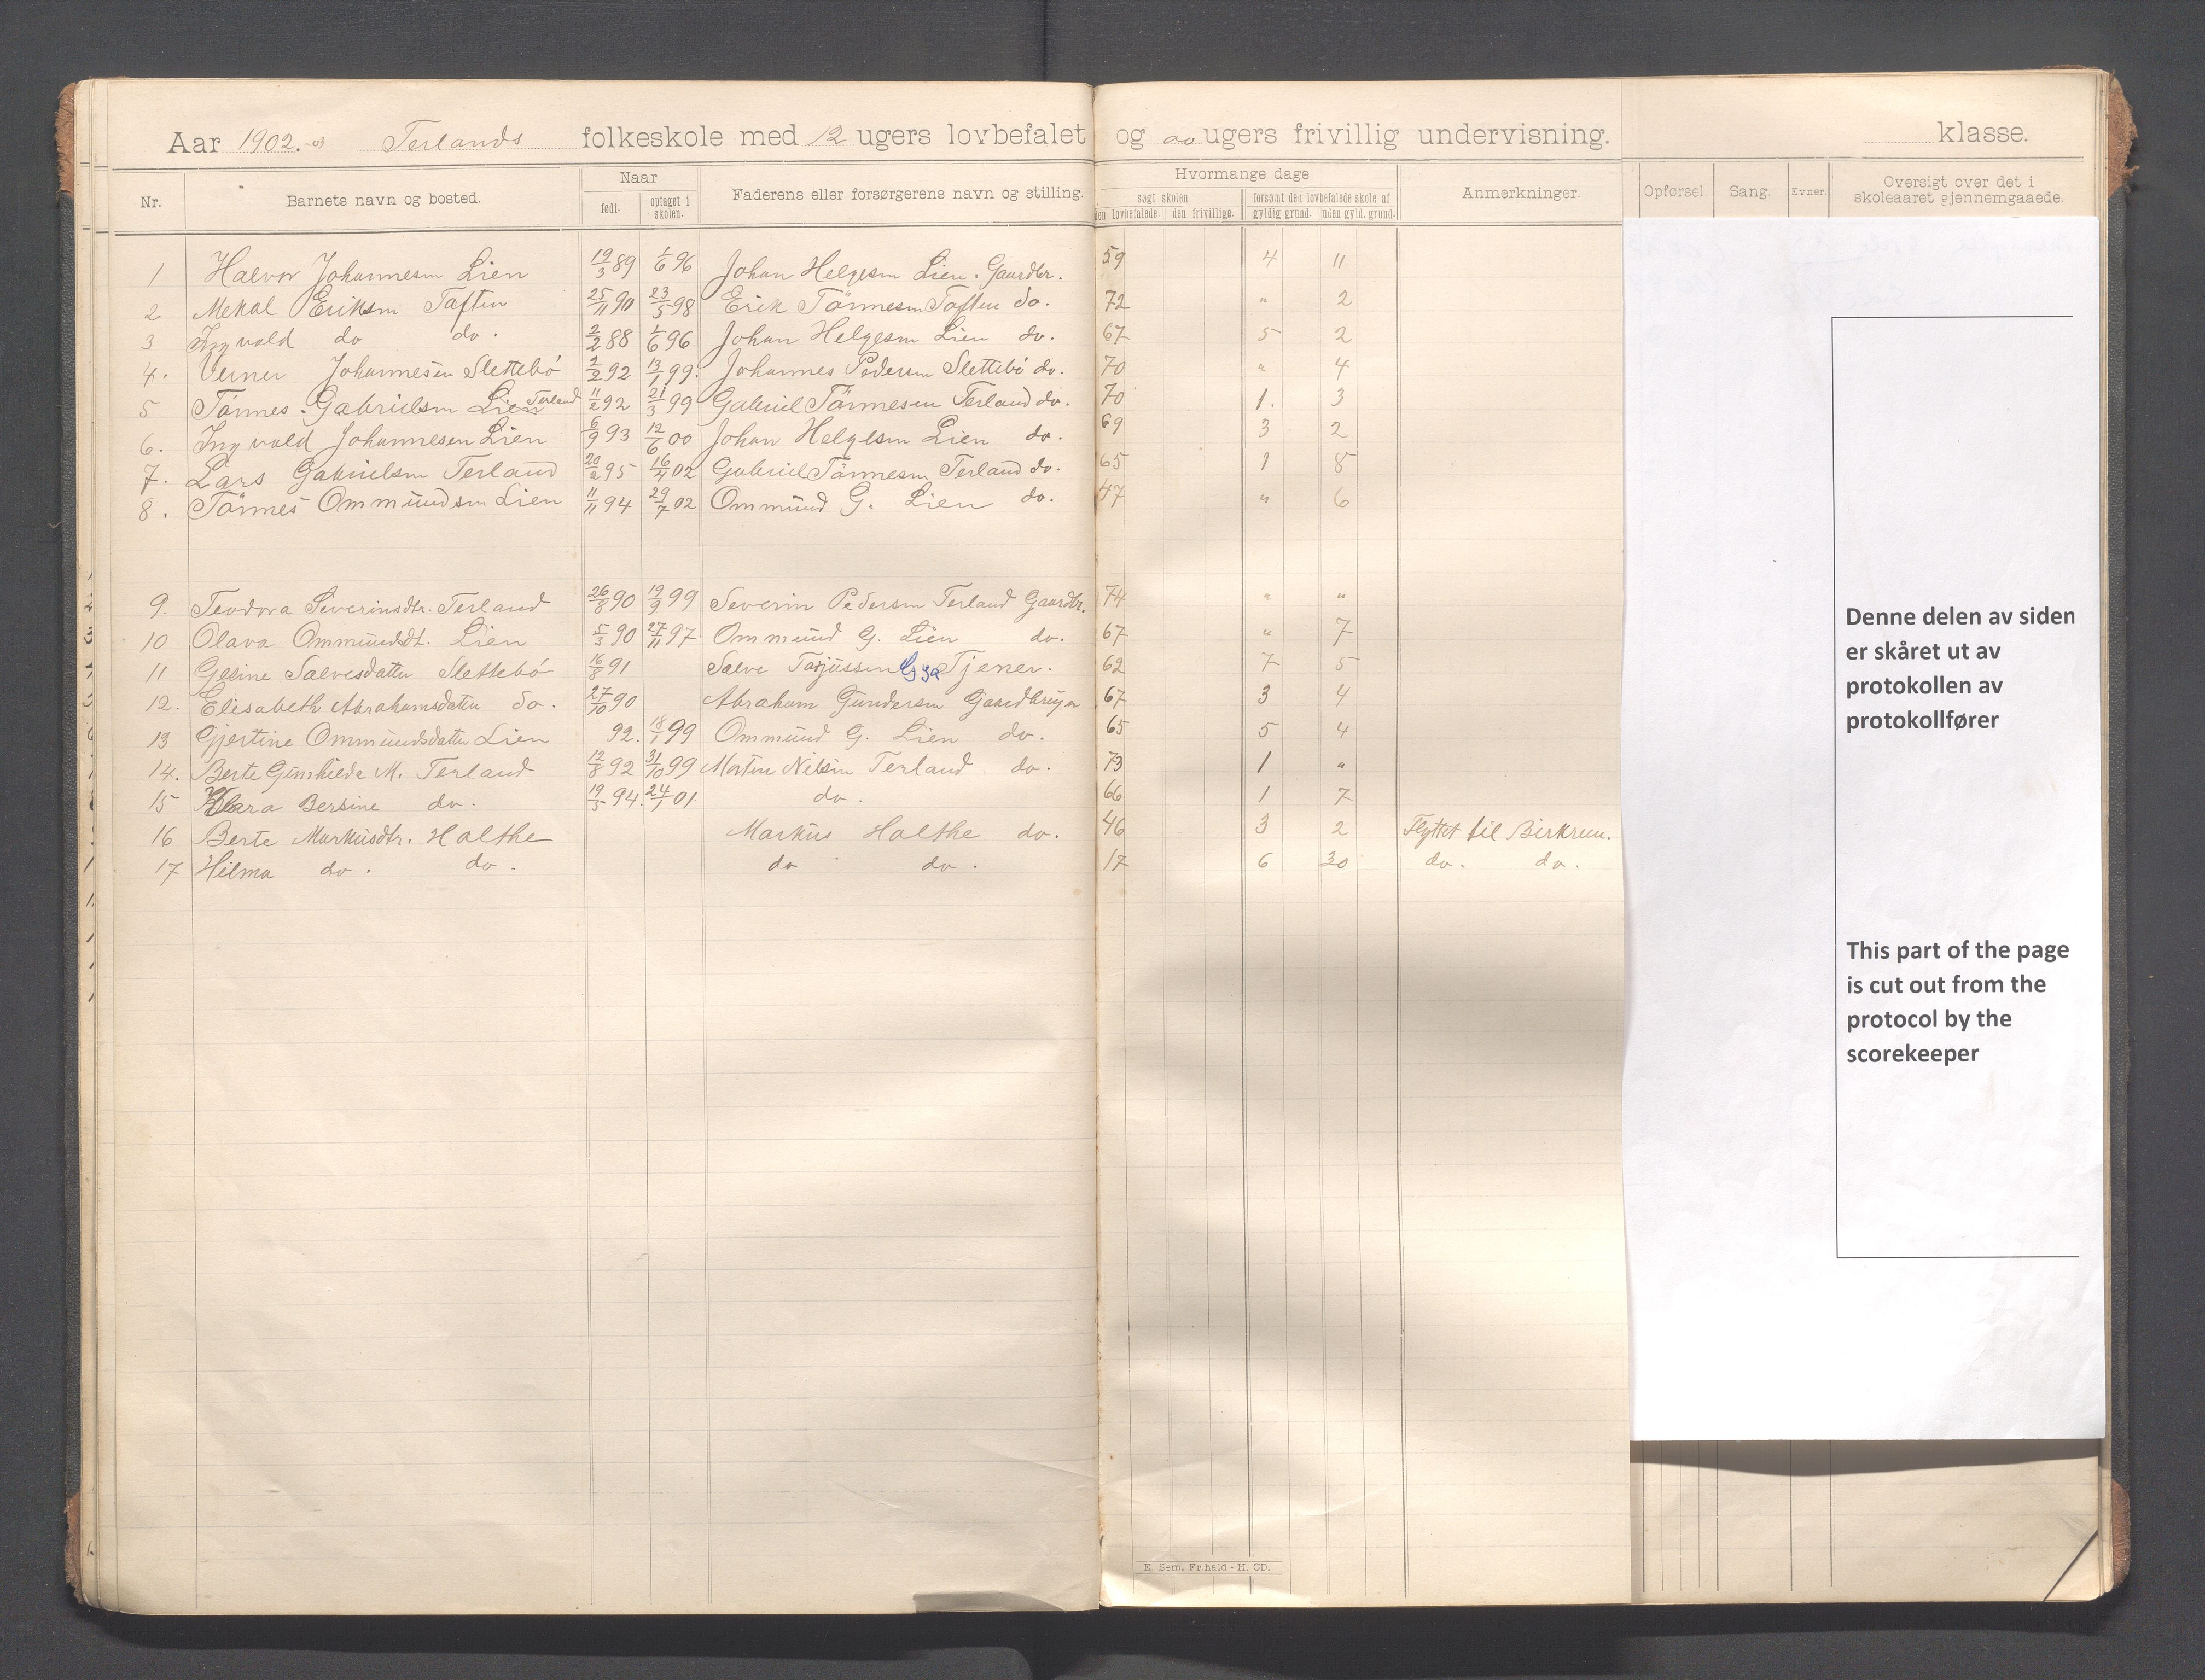 Aar 1902.-03 Terlands folkeskole med 12 ugers lovbefalet og ao ugers frivillig undervisning. klasse.
Nr. Barnets navn og bosted. Naar født. optaget i skolen. Faderens eller forsørgerens navn og stilling. Hvormange dage søgt skolen den lovbefalede den frivillige. forsømt den lovbefalede skole af gyldig grund. uden gyld. grund. Anmerkninger. Opførsel Sang. Evner. Oversigt over det i skoleaaret gjennemgaaede.
1 Halvor Johannesen Lien 19/3 89 1/6 96 Johan Helgesen Lien. Gaardbr. 59 4 11
2 Mekal Eriksen Taften 25/11 90 23/5 98 Erik Tønnesen Taften do. 72 " 2
3 Ingvald do do. 2/2 88 1/6 96 Johan Helgesen Lien do. 67 5 2
4. Verner Johannesen Slettebø 2/2 92 13/1 99. Johannes Pedersen Slettebø do. 70 " 4
5 Tønnes Gabrielsen Lien Terland 11/2 92 21/3 99 Gabriel Tønnesen Terland do. 70 1. 3
6. Ingvald Johannesen Lien 6/9 93 12/6 00 Johan Helgesen Lien do. 69 3 2
7. Lars Gabrielsen Terland 20/2 95 16/4 02 Gabriel Tønnesen Terland do. 65 1 8
8. Tønnes Ommundsen Lien 11/11 94 29/7 02 Ommund G. Lien do. 47 " 6
9. Teodora Severinsdtr. Terland 26/8 90 19/9 99 Severin Pedersen Terland Gaardbr. 74 " "
10 Olava Ommundsdt. Lien 5/3 90 27/11 97 Ommund G. Lien do. 67 " 7
11 Gesine Salvesdatter Slettebø 16/8 91 Salve Tarjussen Gya Tjener. 62 7 5
12. Elisabeth Abrahamsdatter do. 27/10 90 Abraham Gundersen Gaardbruger 67 3 4
13 Gjertine Ommundsdatter Lien 92. 18/1 99 Ommund G. Lien do. 65 5 4
14. Berte Gunhilde M. Terland 12/8 92 31/10 99 Morten Nilsen Terland do. 73 1 "
15 Klara Bersine do. 19/5 94. 24/1 01 do. 66 1 7
16 Berte Markusdtr. Holthe Markus Holthe do. 46 3 2 Flyttet til Birkrem.
17 Hilma do. do. do do. 17 6 30 do. do.
Denne delen av siden
er skåret ut av
protokollen av
protokollfører
This part of the page
is cut out from the
protocol by the
scorekeeper
E. Sem, Fr.hald - H. CD.